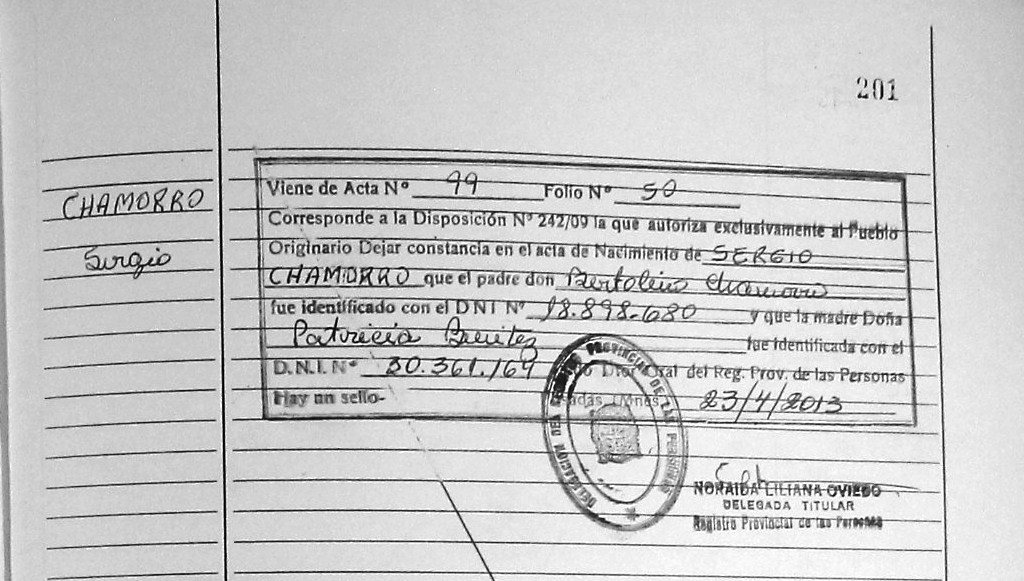 201
CHAMORRO
Sergio
Viene de Acta Nº 99 Folio Nº 50
Corresponde a la Disposición Nº 242/09 la que autoriza exclusivamente al Pueblo
Originario Dejar constancia en el acta de Nacimiento de SERGIO
CHAMORRO que el padre don Bertolino Chamorro
fue identificado con el DNI Nº 18.898.680 y que la madre Doña
Patricia Benitez fue identificada con el
D.N.I. Nº 30.361.164 Dtor Gral del Reg. Prov. de las Personas
Hay un sello- Posadas, Mnes 23/4/2013
DELEGACION DEL REGISTRO PROVINCIAL DE LAS PERSONAS
NORAIDA LILIANA OVIEDO
DELEGADA TITULAR
Registro Provincial de las Personas